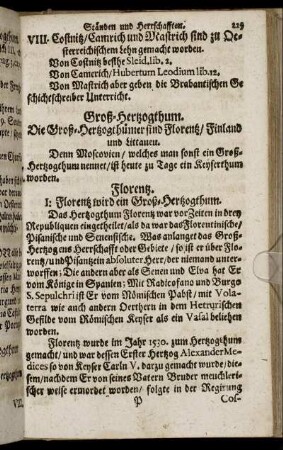 Ständen und Herrschafften. 229
VIII. Costnitz/ Camrich und Mastrich sind zu Oe-
sterreichischem Lehn gemacht worden.
Von Costnitz besihe Sleid. lib. 2.
Von Camerich/ Hubertum Leodium lib. 12.
Von Mastrich aber geben die Brabantischen Ge-
schichtschreiber Unterricht.
Groß-Hertzogthum.
Die Groß-Hertzogthümer sind Florentz/ Finland
und Littauen.
Denn Moscovien/ welches man sonst ein Groß-
Hertzogthum nennet/ ist heute zu Tage ein Keyserthum
worden.
Florentz.
I: Florentz wird ein Groß-Hertzogthum.
Das Hertzogthum Florentz war vor Zeiten in drey
Republiquen eingetheilet/ als da war das Florentinische/
Pisanische und Senensische. Was anlanget das Groß-
Hertzogens Herrschafft oder Gebiete/ so ist er über Flo-
rentz/ und Pisantzein absoluter Herr/ der niemand unter-
worffen; Die andern aber als Senen und Elva hat Er
vom Könige in Spanien; Mit Radicofano und Burgo
S. Sepulchri ist Er vom Römischen Pabst/ mit Vola-
terra wie auch andern Oerthern in dem Hetrurischen
Gefilde vom Römischen Keyser als ein Vasal beliehen
worden.
Florentz wurde im Jahr 1530. zum Hertzogthum
gemacht/ und war dessen Erster Hertzog Alexander Me-
dices so von Keyser Carln V. darzu gemacht wurde/ die-
sem/ nachdem Er von seines Vatern Bruder meuchleri-
scher weise ermordet worden/ folgte in der Regirung
P Cos-